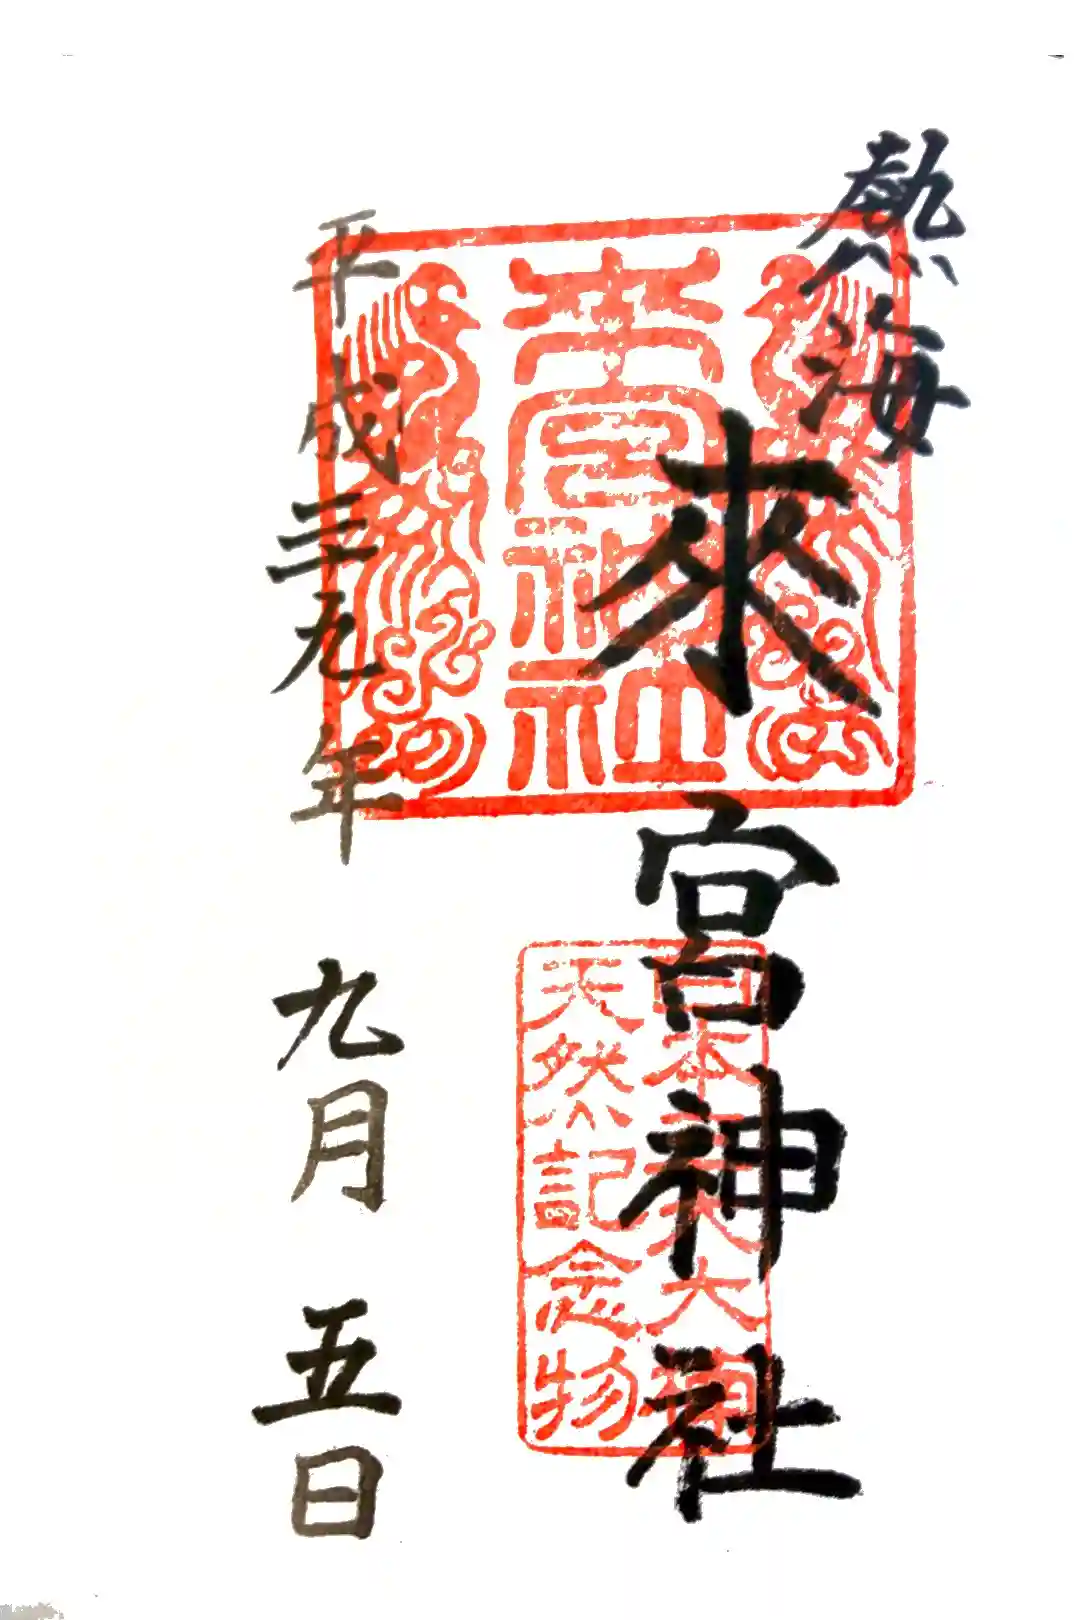 熱海
來宮神社
來宮神社
日本 大楠
天然記念物
平成二十九年 九月 五日